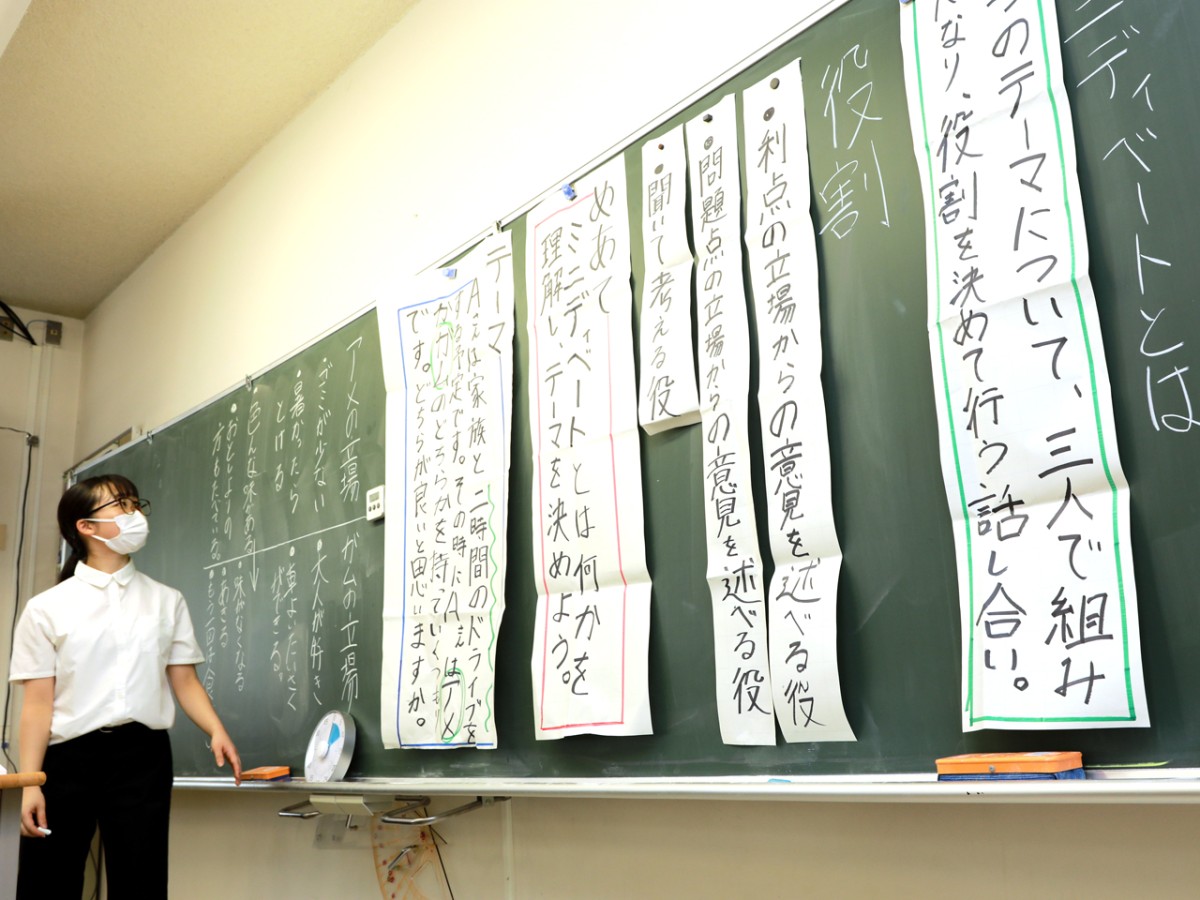 ニディベートとは
のテーマについて、三人で組み
なり、役割を決めて行う話し合い。
役割
・利点の立場からの意見を述べる役
・問題点の立場からの意見を述べる役
・聞いて考える役
めあて
ミニディベートとは何かを
理解し、テーマを決めよう。
テーマ
Aさんは家族と二時間のドライブを
する予定です。その時にAさんはアメ
かガムのどちらかを持っていくつもり
です。どちらが良いと思いますか。
アメの立場
・ゴミが少ない
・暑かったら
とける
・色んな味がある
・おとしよりの
ガムの立場
・大人が好き
・味がなくなる
・あきる